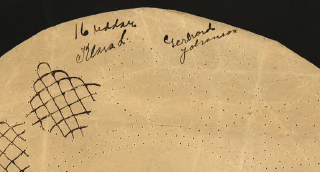 16 uddar
Klara L.
Gertrud
Johansson